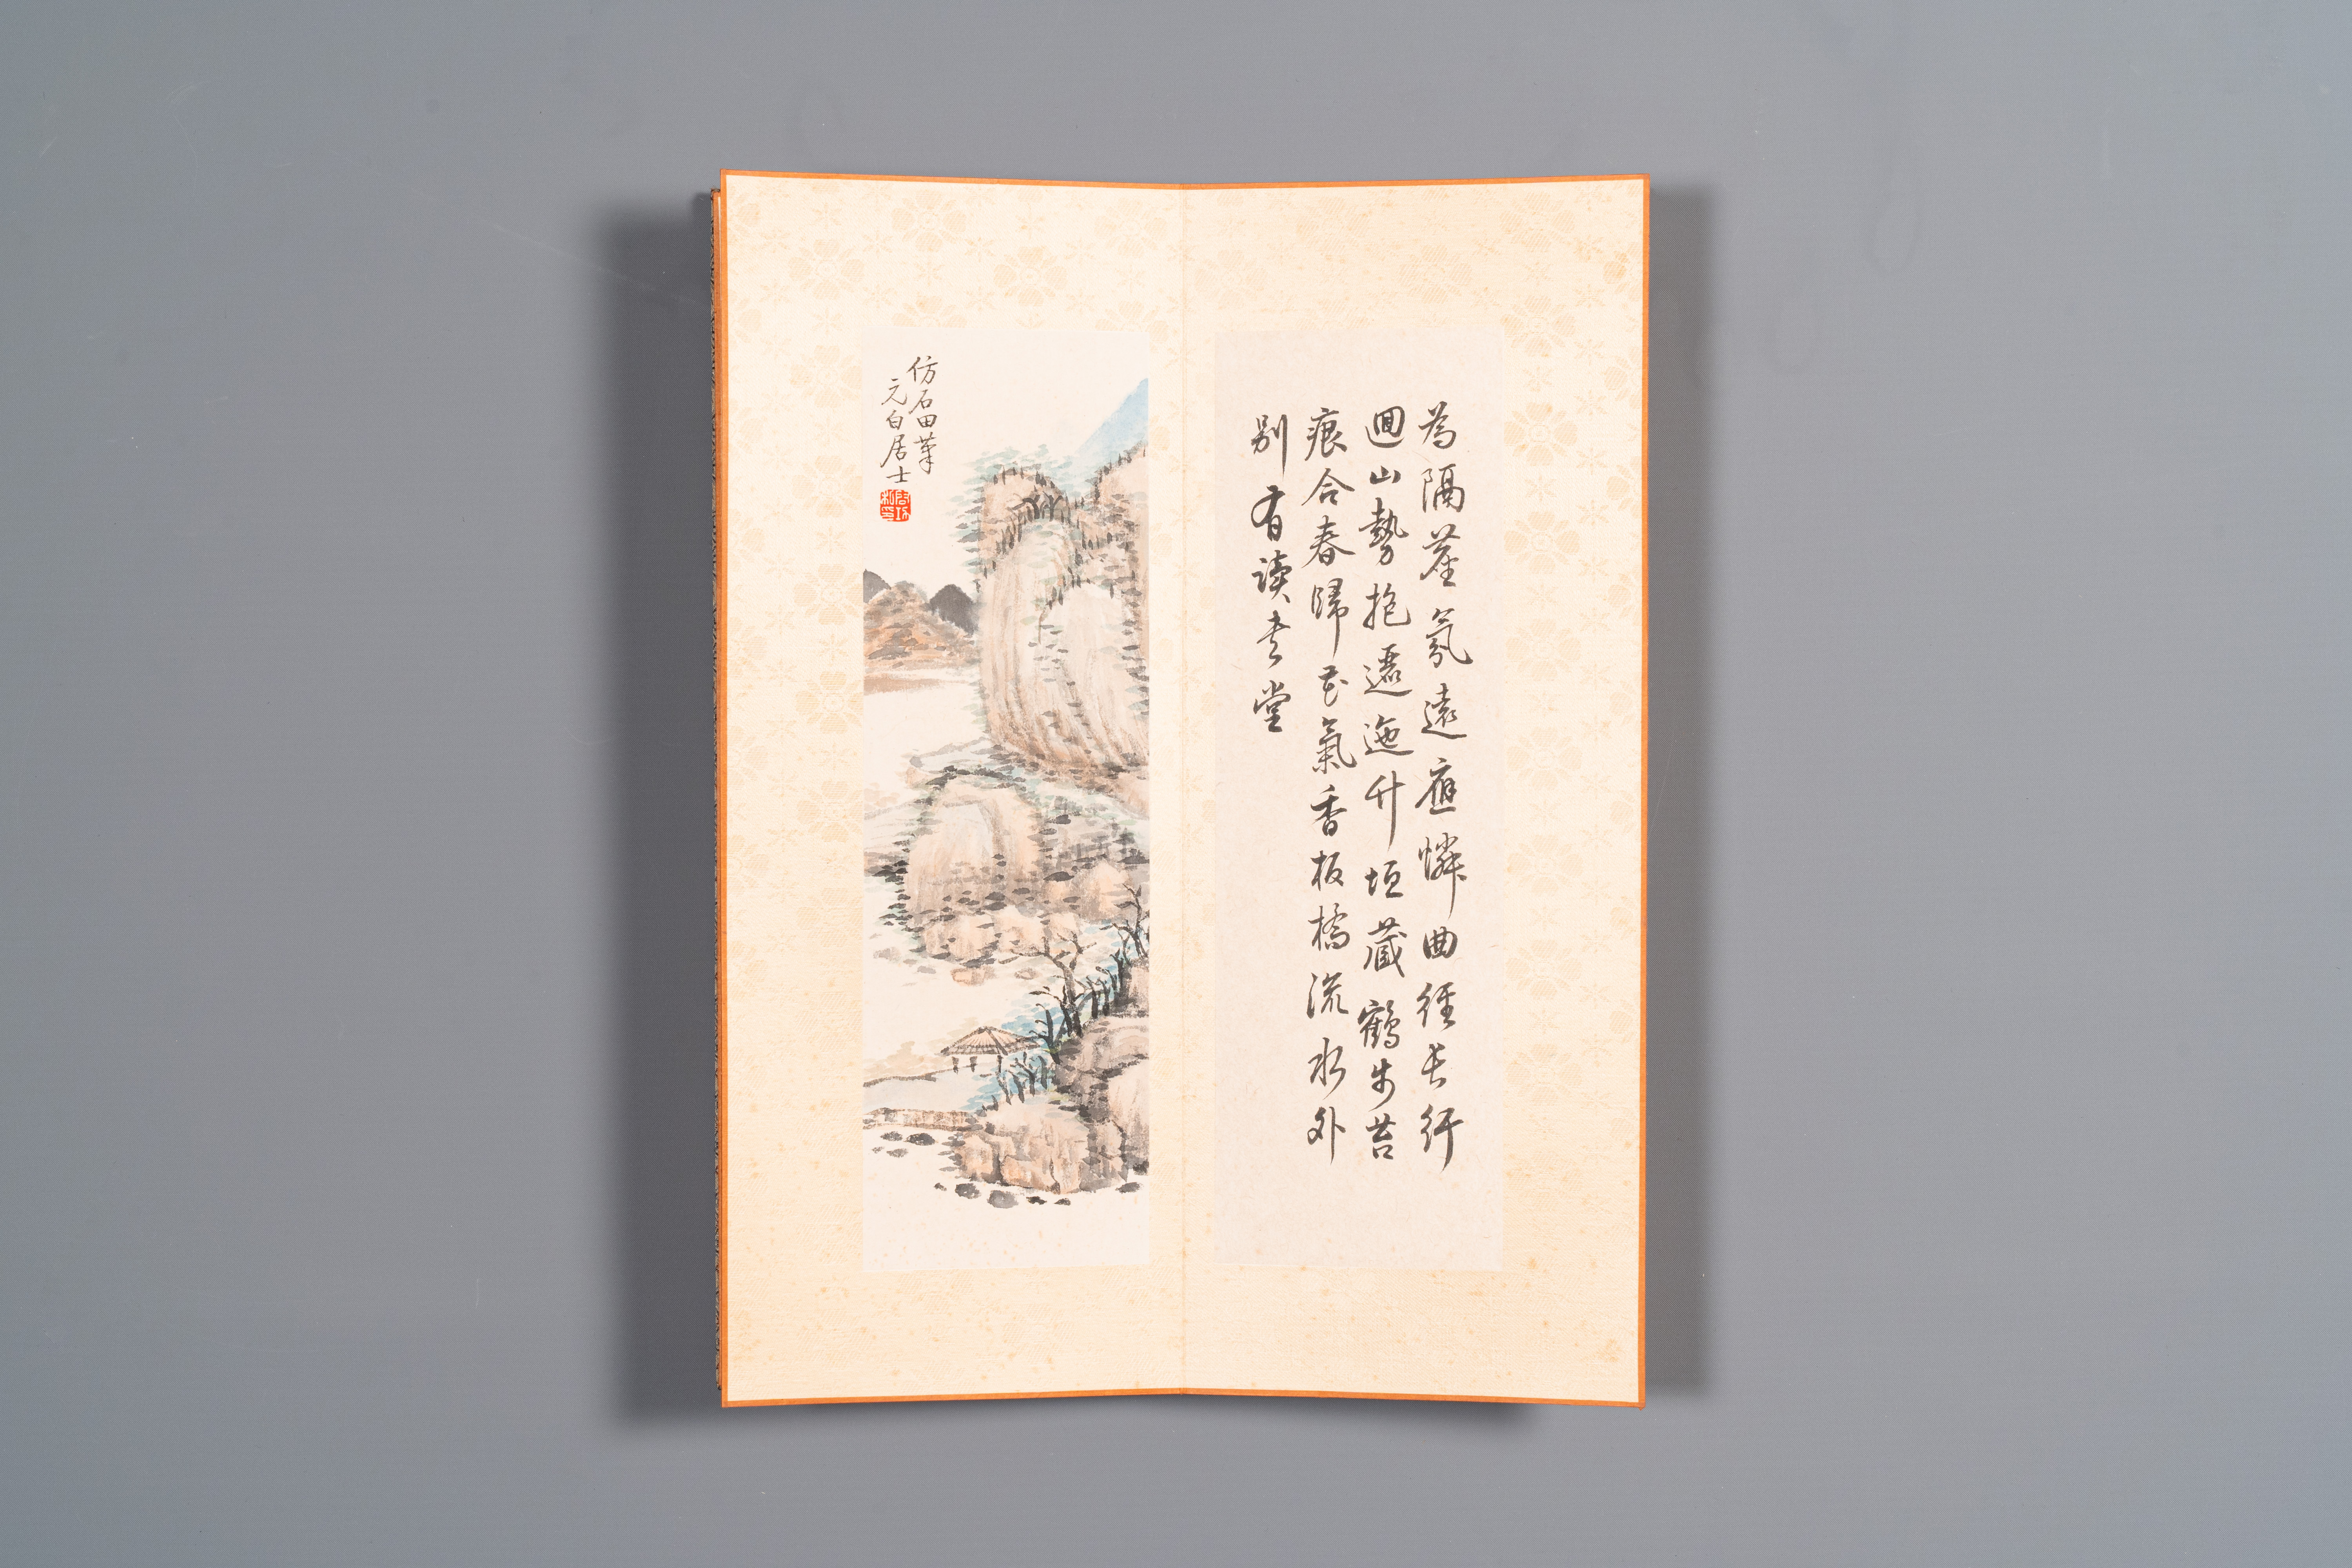 為隔塵氛遠應憐曲徑長行
迴山勢抱邐迤竹垣藏鶴步苔
痕合春歸花氣香板橋流水外
別有讀書堂
仿石田筆
元白居士